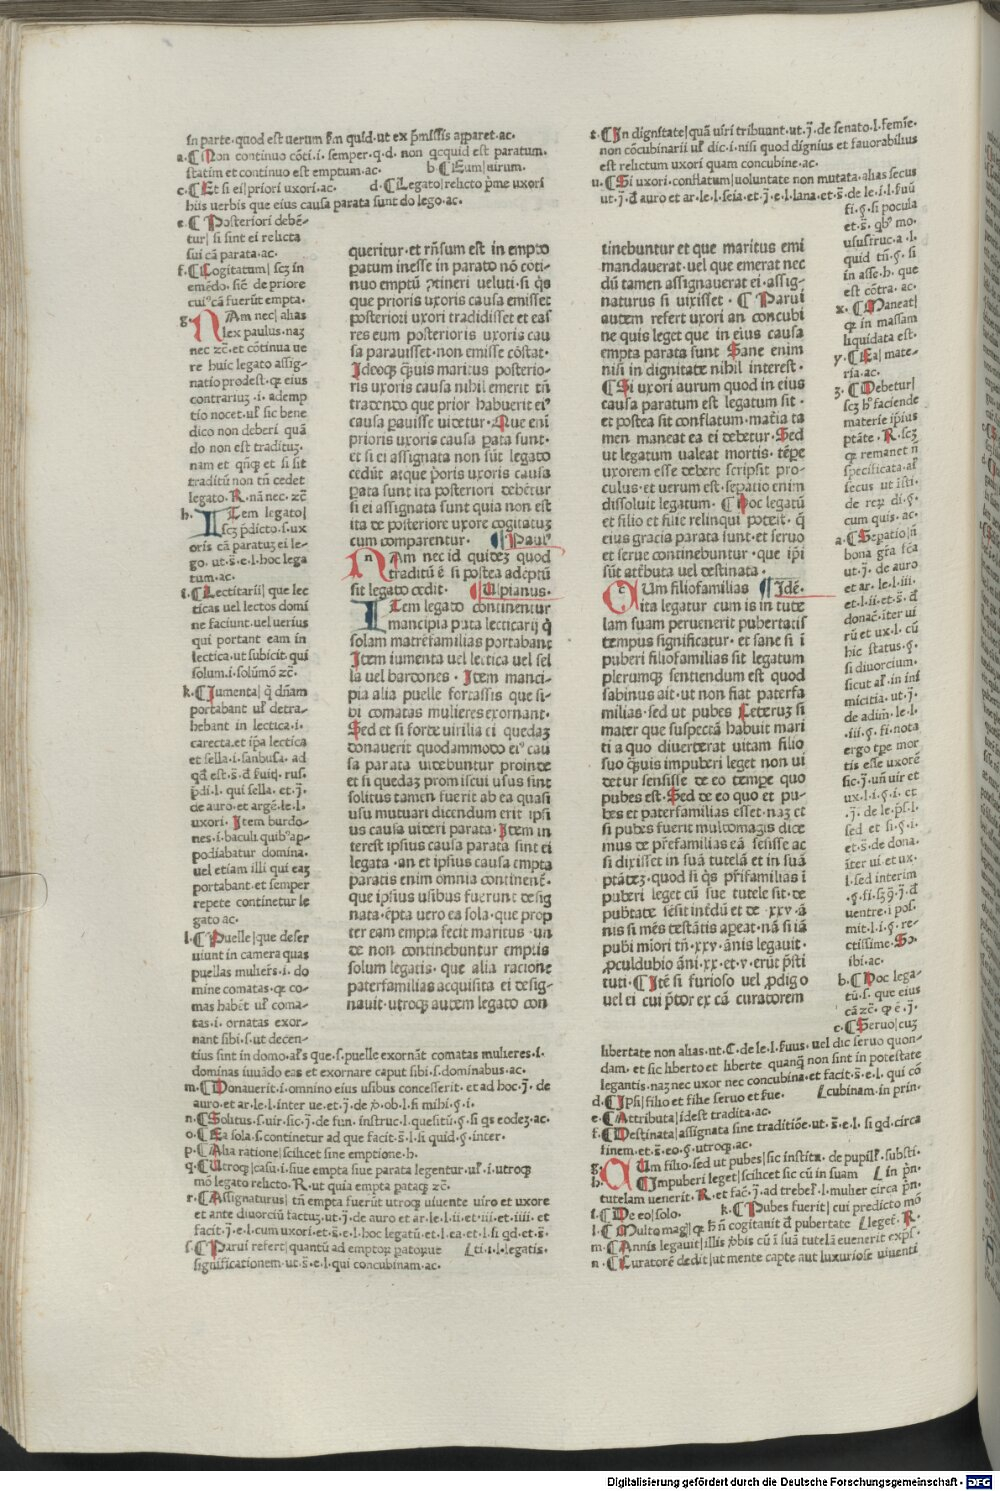 in parte·quod est uerum s̄m quid·ut ex p̄missis apparet·ac·
a·¶Non continuo cōti·i·semper·q·d·non qcquid est paratum·
statim et continuo est emptum·ac· b ¶Eum|uirum·
c·¶Et si ei|priori uxori·ac· d·¶Legato|relicto p̄me uxori
hiis uerbis que eius causa parata sunt do lego·ac·
e·¶Posteriori debē-
tur|si sint ei relicta
sui cā parata·ac·
f·¶Cogitatum|scꝫ in
emēdo·sic̄ de priore
cuiꝰ cā fuerūt empta·
g·NAm nec|alias
lex paulus·naꝫ
nec ⁊c̄·et cōtinua ue
re huic legato assig-
natio prodest·ꝙ eius
contrariuꝫ·i·ademp
tio nocet·uł sic bene
dico non deberi quā
do non est tradituꝫ·
nam et qn̄qꝫ et si sit
traditū non tn̄ cedet
legato·R·nā nec·⁊c̄
h·ITem legato|
scꝫ p̄dicto·s·ux
oris cā paratuꝫ ei le-
go·ut·s̄·e·l·hoc lega
tum·ac·
i·¶Lectitarii|que lec
ticas uel lectos domi
ne faciunt·uel uerius
qui portant eam in
lectica·ut subicit·qui
solum·i·solūmō ⁊c̄·
k·¶Jumenta|q̄ dn̄am
portabant uł detra-
hebant in lectica·i·
carecta·et ip̄a lectica
et sella·i·sanbusa·ad
qd̄ est·s̄·d̄ fuiq·rus·
p̄di·l·qui sella·et·j̄·
de auro·et argē·le·l·
uxori·Item burdo-
nes·i·baculi quibꝰ ap-
podiabatur domina·
uel etiam illi qui eaꝫ
portabant·et semper
repete continetur le
gato ac·
l·¶Puelle|que deser
uiunt in camera quas
puellas mulier̄s·i·do
mine comatas·ꝙ co-
mas habēt uł coma-
tas·i·ornatas exor-
nant sibi·s·ut decen-
tius sint in domo·ał̄s que·s·puelle exornāt comatas mulieres·i·
dominas iuuādo eas et exornare caput sibi·s·dominabus·ac·
m·¶Donauerit|omnino eius usibus concesserit·et ad hoc·j̄·de
auro·et ar·le·l·inter ue·et·j̄·de ꝟ·ob·l·fi mihi·§·i·
n·¶Solitus·s·uir·sic·j̄·de fun·instruc·l·quesitū·§·si qs eodeꝫ·ac·
o·¶Ea sola·s·continetur ad que facit·s̄·l·si quid·§·inter·
p·¶Alia ratione|scilicet sine emptione·h·
q·¶Utroqꝫ|casu·i·siue empta siue parata legentur·uł·i·utroqꝫ
mō legato relicto·R·ut quia empta parataqꝫ ⁊c̄·
r·¶Assignaturus|tn̄ empta fuerūt utroqꝫ uiuente uiro et uxore
et ante diuorciū factuꝫ·ut·j̄·de auro et ar·le·l·ii·et·iii·et·iiii·et
facit·j̄·e·l·cum uxori·et·s̄·e·l·hoc legatū·et·l·ea·et·l·si qd·et·s̄·
s·¶Parui refert|quantū ad emptoꝝ patoꝝue [ti·i·l·legatis·
significationem·ut·s̄·e·l·qui concubinam·ac·
queritur·et rn̄sum est in empto
patum inesse in parato nō coti-
nuo emptū ꝓtineri ueluti·si q̄s
que prioris uxoris causa emisset
posteriori uxori tradidisset et eas
res eum posterioris uxoris cau
sa parauisset·non emisse cōstat·
Ideoqꝫ q̄uis maritus posterio-
ris uxoris causa nihil emerit tn̄
tradendo que prior habuerit eiꝰ
causa pauisse uidetur·Que eni
prioris uxoris causa pata sunt·
et si ei assignata non sūt legato
cedūt atque p̄oris uxoris causa
pata sunt ita posteriori debētur
si ei assignata sunt quia non est
ita de posteriore uxore cogitatuꝫ
cum comparentur· ¶Paulꝰ
NAm nec id quideꝫ quod
traditū ē si postea adeptū
sit legato cedit· ¶Ulpianus·
ITem legato continentur
mancipia pata lecticarij q̄
solam matrēfamilias portabant
Item iumenta uel lectica uel sel
la uel bardones·Item manci-
pia alia puelle fortassis que si-
bi comatas mulieres exornant·
Sed et si forte uirilia ei quedaꝫ
donauerit quodammodo eiꝰ cau
sa parata uidebuntur proinde
et si quedaꝫ promiscui usus sint
solitus tamen fuerit ab ea quasi
usu mutuari dicendum erit ipsi
us causa uideri parata·Item in
terest ipsius causa parata sint ei
legata·an et ipsius causa empta
paratis enim omnia continent̄·
que ipsius usibus fuerunt desig
nata·ēpta uero ea sola·que prop
ter eam empta fecit maritus·un
de non continebuntur emptis
solum legatis·que alia racione
paterfamilias acquisita ei desig-
nauit·utroqꝫ autem legato con
t·¶In dignitate|quā uiri tribuunt·ut·j̄·de senato·l·femīe·
non cōcubinarii uł dic·i·nisi quod dignius et fauorabilius
est relictum uxori quam concubine·ac·
u·¶Si uxori·conflatum|uoluntate non mutata·alias secus
ut·j̄·d̄ auro et ar·le·l·seia·et·j̄·e·l·lana·et·s̄·de le·i·l·fuū
fi·§·si pocula
et·s̄·qbꝰ mo·
ususfruc·a·l·
quid tn̄·§·si
in asse·h·que
est cōtra·ac·
x·¶Maneat|
ꝙ in massam
liquidata est·
y·¶Ea|mate-
ria·ac·
ꝫ·¶Debetur|
scꝫ hꝰ faciende
materie ip̄ius
ptāte·R·scꝫ
ꝙ remanet n̄
specificata·ał
secus ut ī isti·
de reꝝ di·§·
cum quis·ac·
a·¶Sepatio|n̄
bona gr̄a f̄ca·
ut·j̄·de auro
et ar·le·l·iii·
et·l·ii·et·s̄·d̄
donac̄·iter ui
rū et ux·l·cū
hic status·§·
si diuorcium·
sicut ał in ini
micitia·ut·j̄·
de adim̄·le·l·
·iii·§·fi·nota
ergo tp̄e mor
tis esse uxorē
sic·j̄·un̄ uir et
ux·l·i·§·i·et
·j̄·de le·p̄s·l·
sed et si·§·i·
et·s̄·de dona·
īter ui·et ux·
l·sed interim
·§·fi·hꝫ q̄·j̄·d̄
uentre·i pos·
mit·l·i·§·re-
ctissime·So·
ibi·ac·
b·¶Hoc lega-
tū·s·que eius
cā ⁊c̄·ꝙ ē·j̄·
c·¶Seruo|cuꝫ
libertate non alias·ut·C·de le·l·fuus·uel dic seruo quon-
dam·et sic liberto et liberte quanqꝫ non sint in potestate
legantis·naꝫ nec uxor nec concubina·et facit·s̄·e·l·qui cō
d·¶Ipsi|filio et filie seruo et s̄ue· [cubinam·in prin·
e·¶Attributa|idest tradita·ac·
f·¶Destinata|assignata sine traditiōe·ut·s̄·e·l·si qd·circa
finem·et·s̄·eo·§·utroqꝫ·ac·
g·QUm filio·sed ut pubes|sic instita·de pupil̄·substi·
h·¶Impuberi leget|scilicet sic cū in suam [in p̄n·
tutelam uenerit·R·et fac̄·j̄·ad trebeł·l·mulier circa p̄n·
i·¶De eo|solo· k·¶Pubes fuerit|cui predicto mō
l·¶Multo mag|ꝙ h̄ n̄ cogitauit d̄ pubertate [leget̄·R·
m·¶Annis legauit|illis ꝟbis cū ī suā tutelā euenerit exps̄·
n·¶Curatorē dedit|ut mente capte aut luxuriose uiuenti
tinebuntur et que maritus emi
mandauerat·uel que emerat nec
dū tamen assignauerat ei·assig-
naturus si uixisset·¶Parui
autem refert uxori an concubi
ne quis leget que in eius causa
empta parata sunt Sane enim
nisi in dignitate nihil interest·
¶Si uxori aurum quod in eius
causa paratum est legatum sit·
et postea sit conflatum·mat̄ia ta
men maneat ea ei debetur·Sed
ut legatum ualeat mortis·tēpe
uxorem esse debere scripsit pro-
culus·et uerum est·sepatio enim
dissoluit legatum·¶Hoc legatū
et filio et filie relinqui poterit·q̄
eius gracia parata sunt·et seruo
et serue continebuntur·que ip̄i
sūt att̄buta uel destinata·
QUm filiofamilias ¶Idē·
ita legatur cum is in tute
lam suam peruenerit pubertatis
tempus significatur·et sane si i
puberi filiofamilias sit legatum
plerumqꝫ sentiendum est quod
sabinus ait·ut non fiat paterfa
milias·sed ut pubes Ceteruꝫ si
mater que suspectā habuit mari
ti a quo diuerterat uitam filio
suo q̄uis impuberi leget non ui
detur sensisse de eo tempe quo
pubes est·Sed de eo quo et pu-
bes et paterfamilias esset·naꝫ et
si pubes fuerit multomagis dice
mus de pr̄efamilias eā sēsisse ac
si dixisset in suā tutelā et in suā
ptātēꝫ·quod si q̄s pr̄ifamilias ī
puberi leget cū sue tutele sit·de
pubtate sēsit intēdū et de·xxv·ā
nis si mēs testātis apeat·nā si iā
pubi miori tn̄·xxv·ānis legauit·
ꝓculdubio āni·xx·et·v·erūt p̄sti
tuti·¶Itē si furioso uel ꝓdigo
uel ei cui p̄tor ex cā curatorem
Digitalisierung gefördert durch die Deutsche Forschungsgemeinschaft - DFG